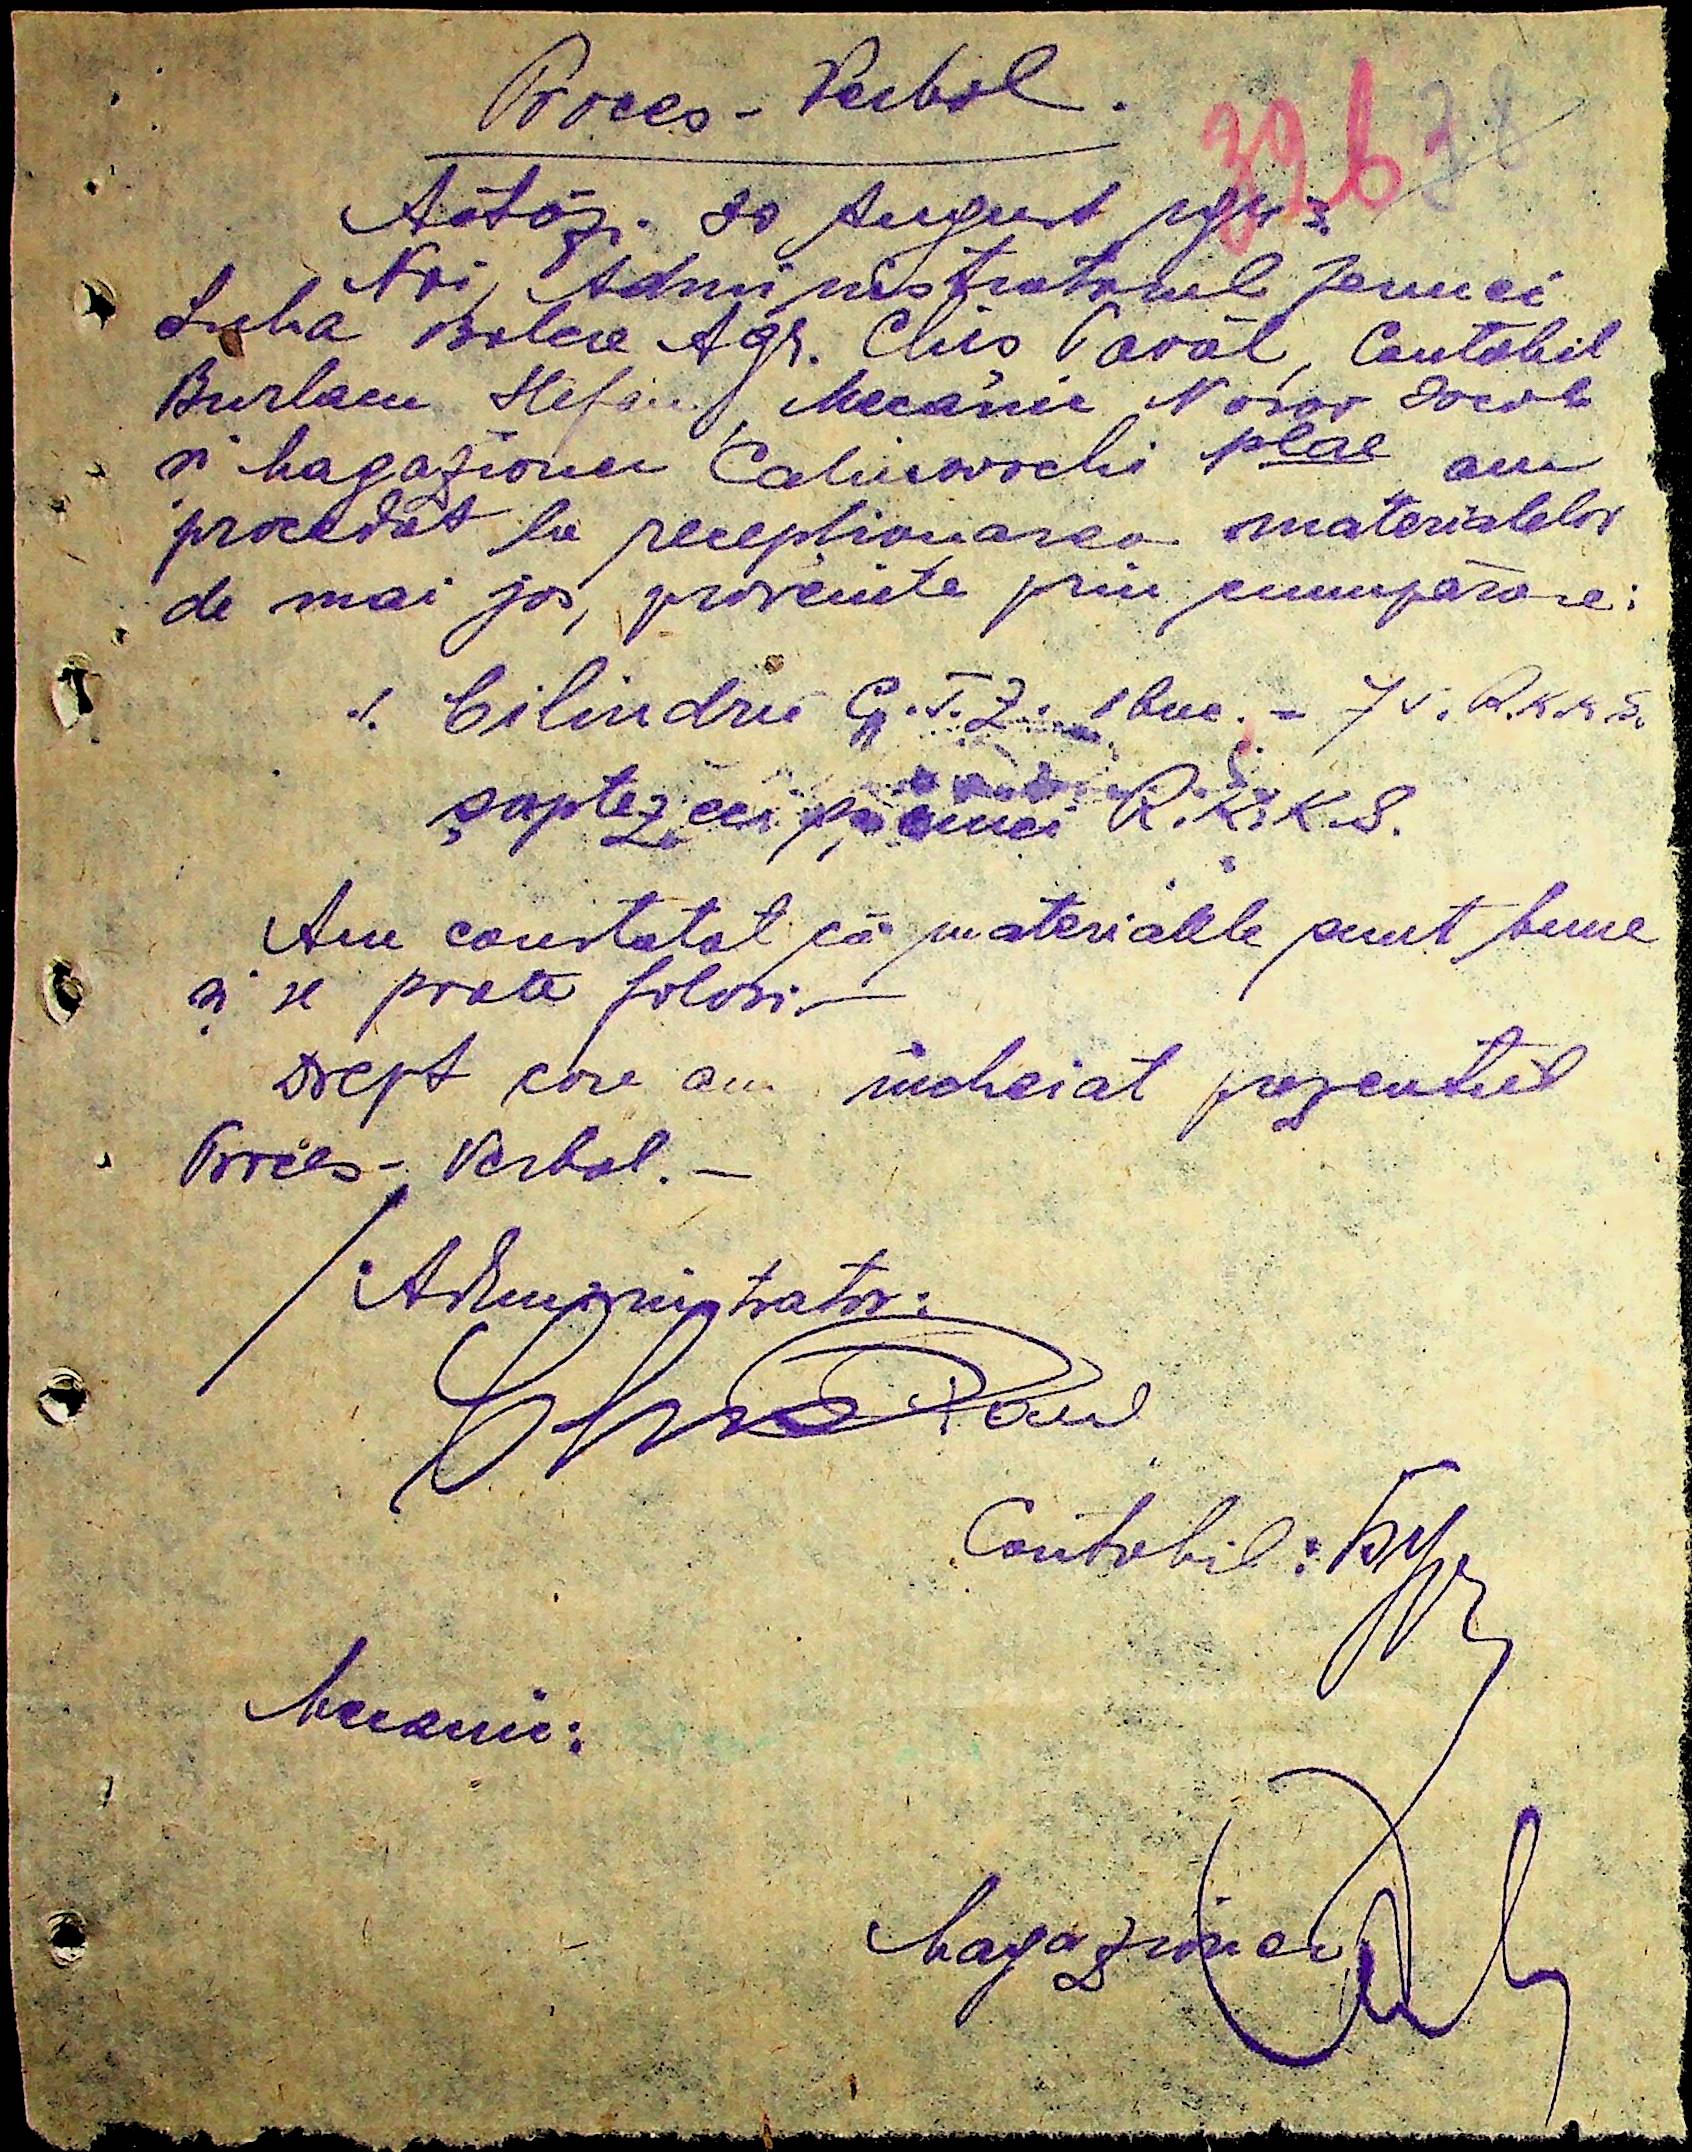 Proces-Verbal.
396 38
Astăzi. 20 August 1943.
Noi, Administratorul fermei
Suha Balca Agr. Chiș Pavăl, Contabil
Burlacu Ștefan, Mecanic Nosov Iacob
și Magazioner Calinovschi am
procedat la recepționarea materialelor
de mai jos, provenite prin cumpărare:
1. Cilindrii G.T.Z. 1 buc. = 75. R.K.K.S.
șaptezeci și cinci R.K.K.S.
Am constatat că materialele sunt bune
și se poate folosi.—
Drept care am încheiat prezentul
Proces-Verbal.—
Administrator:
Contabil:
Mecanic:
Magazioner